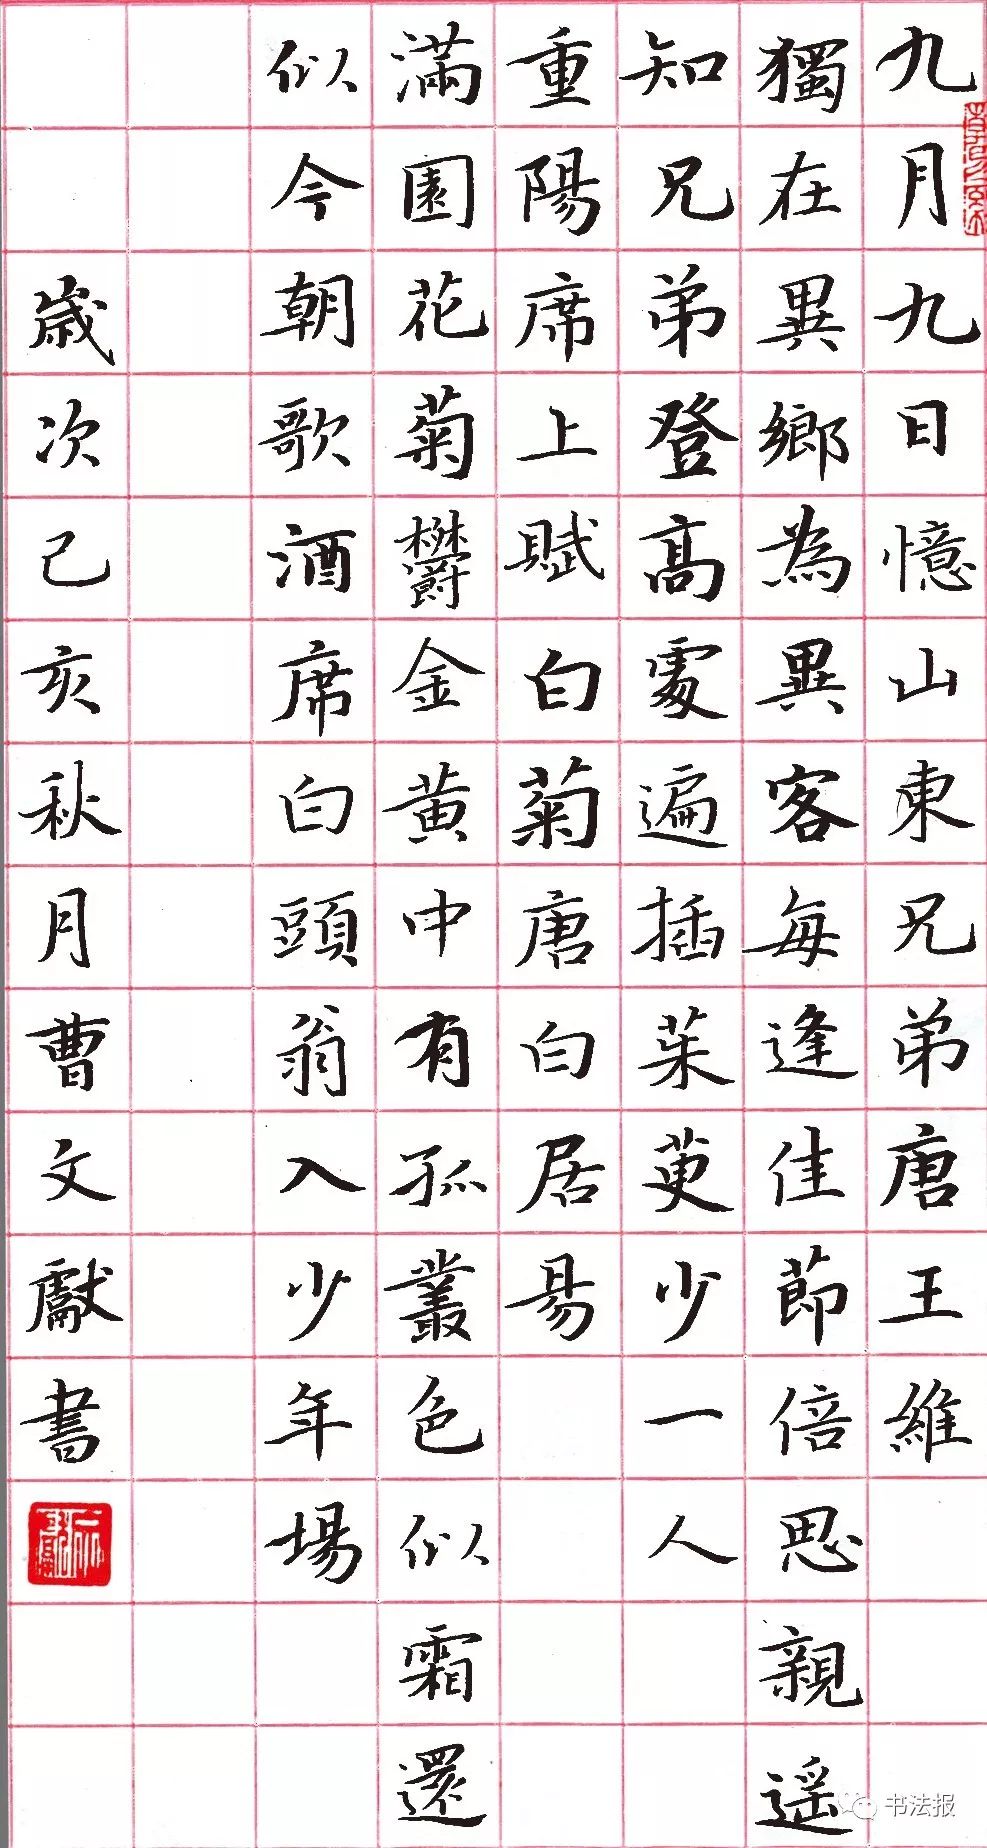 九月九日憶山東兄弟唐王維
獨在異鄉為異客每逢佳節倍思親遥
知兄弟登高處遍插茱萸少一人
重陽席上賦白菊唐白居易
滿園花菊鬱金黄中有孤叢色似霜還
似今朝歌酒席白頭翁入少年場
歲次己亥秋月曹文獻書
书法报